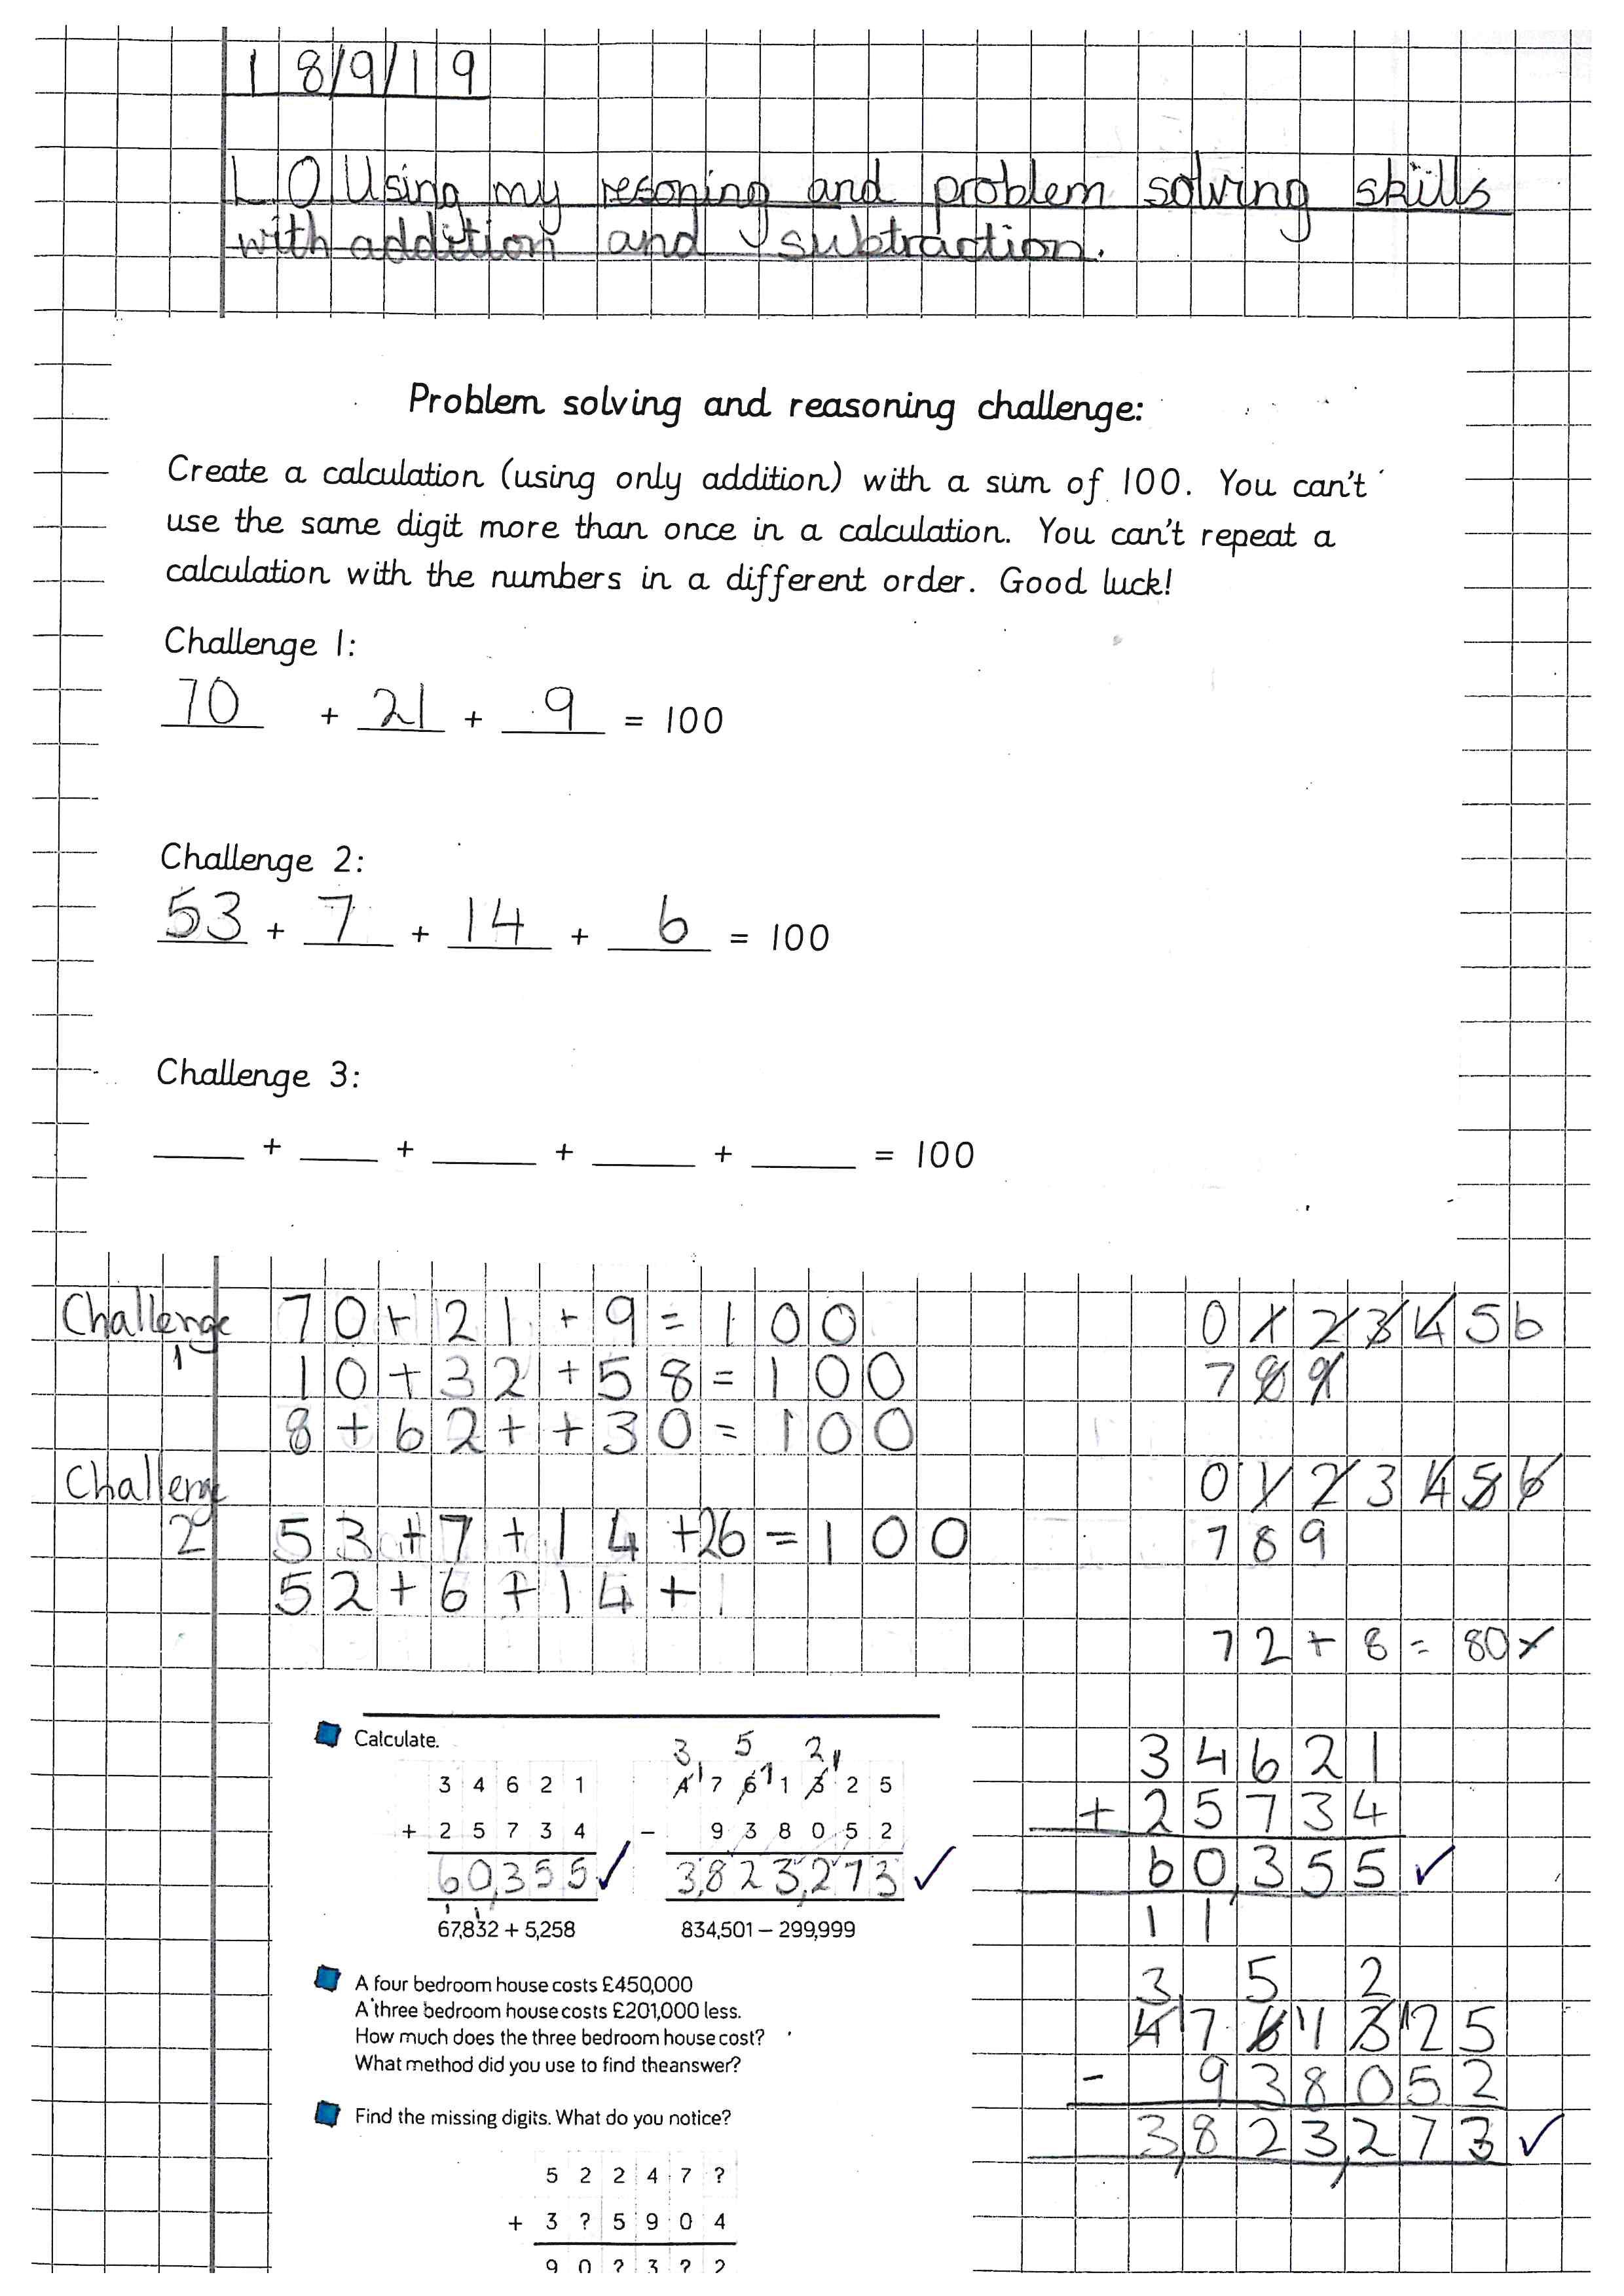 18/9/19
LO Using my resoning and problem solving skills
with addition and subtraction.
Problem solving and reasoning challenge:
Create a calculation (using only addition) with a sum of 100. You can't
use the same digit more than once in a calculation. You can't repeat a
calculation with the numbers in a different order. Good luck!
Challenge 1:
70 + 21 + 9 = 100
Challenge 2:
53 + 7 + 14 + 6 = 100
Challenge 3:
___ + ___ + ___ + ___ + ___ = 100
Challenge 70 + 21 + 9 = 100
1 10 + 32 + 58 = 100
8 + 62 + + 30 = 100
0 1 2 3 4 5 6
7 8 9
Challenge
2 53 + 7 + 14 + 26 = 100
52 + 6 + 14 +
0 1 2 3 4 5 6
7 8 9
72 + 8 = 80
Calculate.
3 4 6 2 1
+ 2 5 7 3 4
60,355 ✓
1 1
3 5 2
4 7 6 1 3 2 5
- 9 3 8 0 5 2
3,823,273 ✓
67,832 + 5,258
834,501 – 299,999
A four bedroom house costs £450,000
A three bedroom house costs £201,000 less.
How much does the three bedroom house cost?
What method did you use to find theanswer?
Find the missing digits. What do you notice?
5 2 2 4 7 ?
+ 3 ? 5 9 0 4
9 0 ? 3 ? 2
3 4 6 2 1
+ 2 5 7 3 4
60,355 ✓
1 1
3 5 2
4 7 6 1 3 2 5
- 9 3 8 0 5 2
3,823,273 ✓